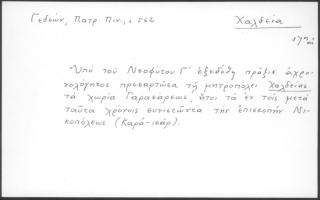 Γεδεών, Πατρ. Πιν., σ 562
Χαλδεία
17ος αἰ
"Ὑπό τοῦ Νεοφύτου Γ´ ἐξεδόθη πρᾶξις ἀχρο-
νολόγητος προσαρτῶσα τῇ μητροπόλει Χαλδείας
τά χωρία Γαρασάρεως, ἤτοι τά ἐν τοῖς μετά
ταῦτα χρόνοις συνιστῶντα τήν ἐπισκοπήν Νι-
κοπόλεως (Καρά-ισάρ).